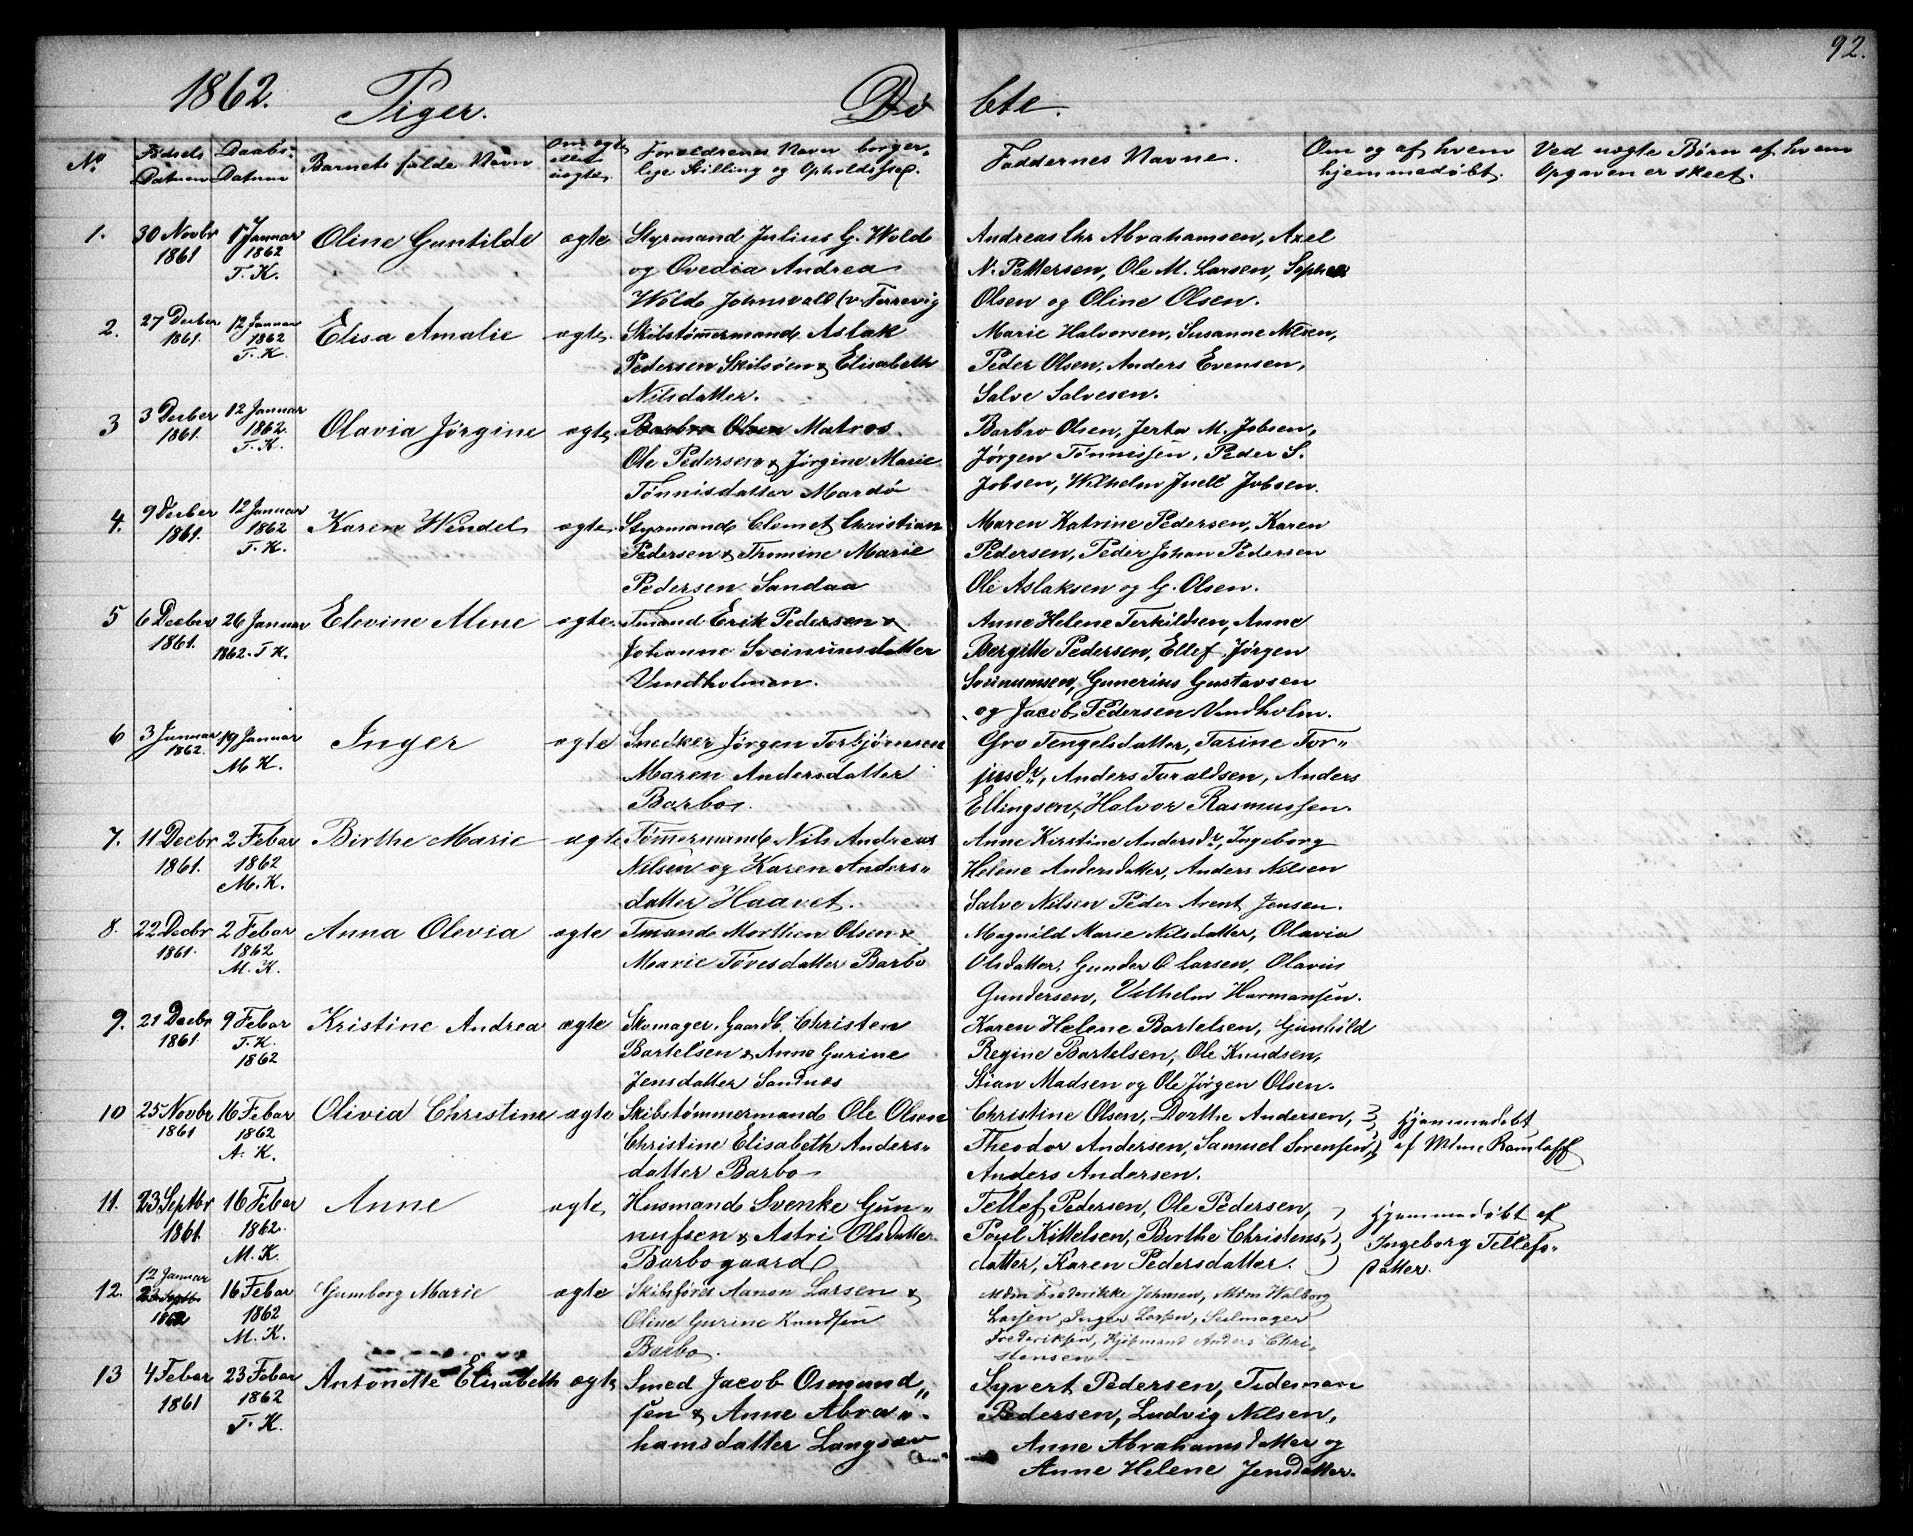 92.
1862. Piger. Dø bte.
No. Fødsels Datum Daabs- Datum Barnets fulde Navn Om ægte eller uægte. Forældrenes Navn borger-
lige Stilling og Opholdssted.
Faddernes Navne. Om og af hvem hjemmedøbt. Ved uægte Børn af hvem Opgaven er skeet.
1. 30 Novbr 1861 1 Januar 1862 T. K. Oline Guntilde ægte Styrmand Julius G. Wold
og Ovedia Andrea
Wold Johnsvald v. Færrevig
Andreas Chr Abrahamsen, Axel
N. Pettersen, Ole M. Larsen, Sophie
Olsen og Oline Olsen.
2. 27 Decber 1861. 12 Januar 1862 T. K. Elisa Amalie ægte. Skibstømmermand Aslak
Pedersen Skilsøen & Elisabeth
Nilsdatter.
Marie Halvorsen, Susanne Nilsen,
Peder Olsen, Anders Evensen,
Salve Salvesen.
3 3 Decber 1861. 12 Januar 1862. T. K. Olavia Jørgine ægte. Barbro Olsen Matros
Ole Pedersen & Jørgine Marie
Tönnisdatter Mardø
Barbro Olsen, Jerta M. Jobsen,
Jørgen Tönnissen, Peder S.
Jobsen, Wilhelm Juell Jobsen.
4. 9 Decber 1861. 12 Januar 1862 T. K. Karen Wendel ægte. Styrmand Clemet Christian
Pedersen & Thomine Marie
Pedersen Sandaa
Maren Katrine Pedersen, Karen
Pedersen, Peder Johan Pedersen
Ole Aslaksen og G. Olsen.
5 6 Decber 1861. 26 Januar 1862. T K. Elevine Aline ægte. Tmand Erik Pedersen &
Johanne Sveinunsdatter
Vindholmen.
Anne Helene Terkildsen, Anne
Bergitte Pedersen, Ellef Jørgen
Sveinumsen, Gunerius Gustavsen
og Jacob Pedersen Vindholm.
6 3 Januar 1862. 19 Januar M K. Inger ægte Snedker Jørgen Torbjørnsen
Maren Andersdatter
Barbo.
Gro Tengelsdatter, Tarine Tor-
jusdr, Anders Taraldsen, Anders
Ellingsen, Halvor Rasmussen.
7. 11 Decbr 1861. 2 Febar 1862 M. K. Birthe Marie ægte Tømmermand Nils Andreas
Nilsen og Karen Anders-
datter Haavet.
Anne Kirstine Andersdr, Ingeborg
Helene Andersdatter, Anders Nilsen
Salve Nilsen Peder Arent Jensen.
8. 22 Decbr 1861. 2 Febar 1862 M. K. Anna Olevia ægte Tmand Morthen Olsen &
Marie Tövesdatter Barbo
Magnild Marie Nilsdatter, Olavia
Olsdatter, Gunder O Larsen, Olavius
Gundersen, Vilhelm Harmansen.
9. 21 Decbr 1861. 9 Febar T. K. 1862 Kristine Andrea ægte Skomager. Gaardb. Christen
Bartelsen & Anne Gurine
Jensdatter Sandnæs
Karen Helene Bartelsen, Gunhild
Regine Bartelsen, Ole Knudsen,
Stian Madsen og Ole Jørgen Olsen.
10 25 Novbr 1861 16 Febar 1862 A. K. Olivia Christine ægte Skibstømmermand Ole Olsen
Christine Elisabeth Anders-
datter Barbo
Christine Olsen, Dorthe Andersen,
Theodor Andersen, Samuel Sørensen
Anders Andersen.
Hjemmedøbt
af Mdme Ramlaff
11. 23 Septbr 1861. 16 Febar 1862. M. K. Anne ægte Husmand Svenke Gun-
nufsen & Astri Olsdatter
Barbogaard
Tellef Pedersen, Ole Pedersen,
Poul Kittelsen, Birthe Christens-
datter, Karen Pedersdatter.
Hjemmedøbt af
Ingeborg Tellefs-
datter.
12. 12 Januar 23 Septb. 1862 16 Febar 1862 M. K. Gumborg Marie ægte Skibsfører Aanon Larsen &
Oline Gurine Knudsen
Barbo.
Mdm Frederikke Jehnsen, Mdm Walborg
Larsen, Inger Larsen, Seilmager
Frederiksen, Kjøbmand Anders Chri-
stensen.
13 4 Febar 1861 23 Febar 1862 T. K. Antonette Elisabeth ægte Smed Jacob Osmund-
sen & Anne Abra-
hamsdatter Langsæv
Syvert Pedersen, Tideman
Pedersen, Ludvig Nilsen,
Anne Abrahamsdatter og
Anne Helene Jensdatter.